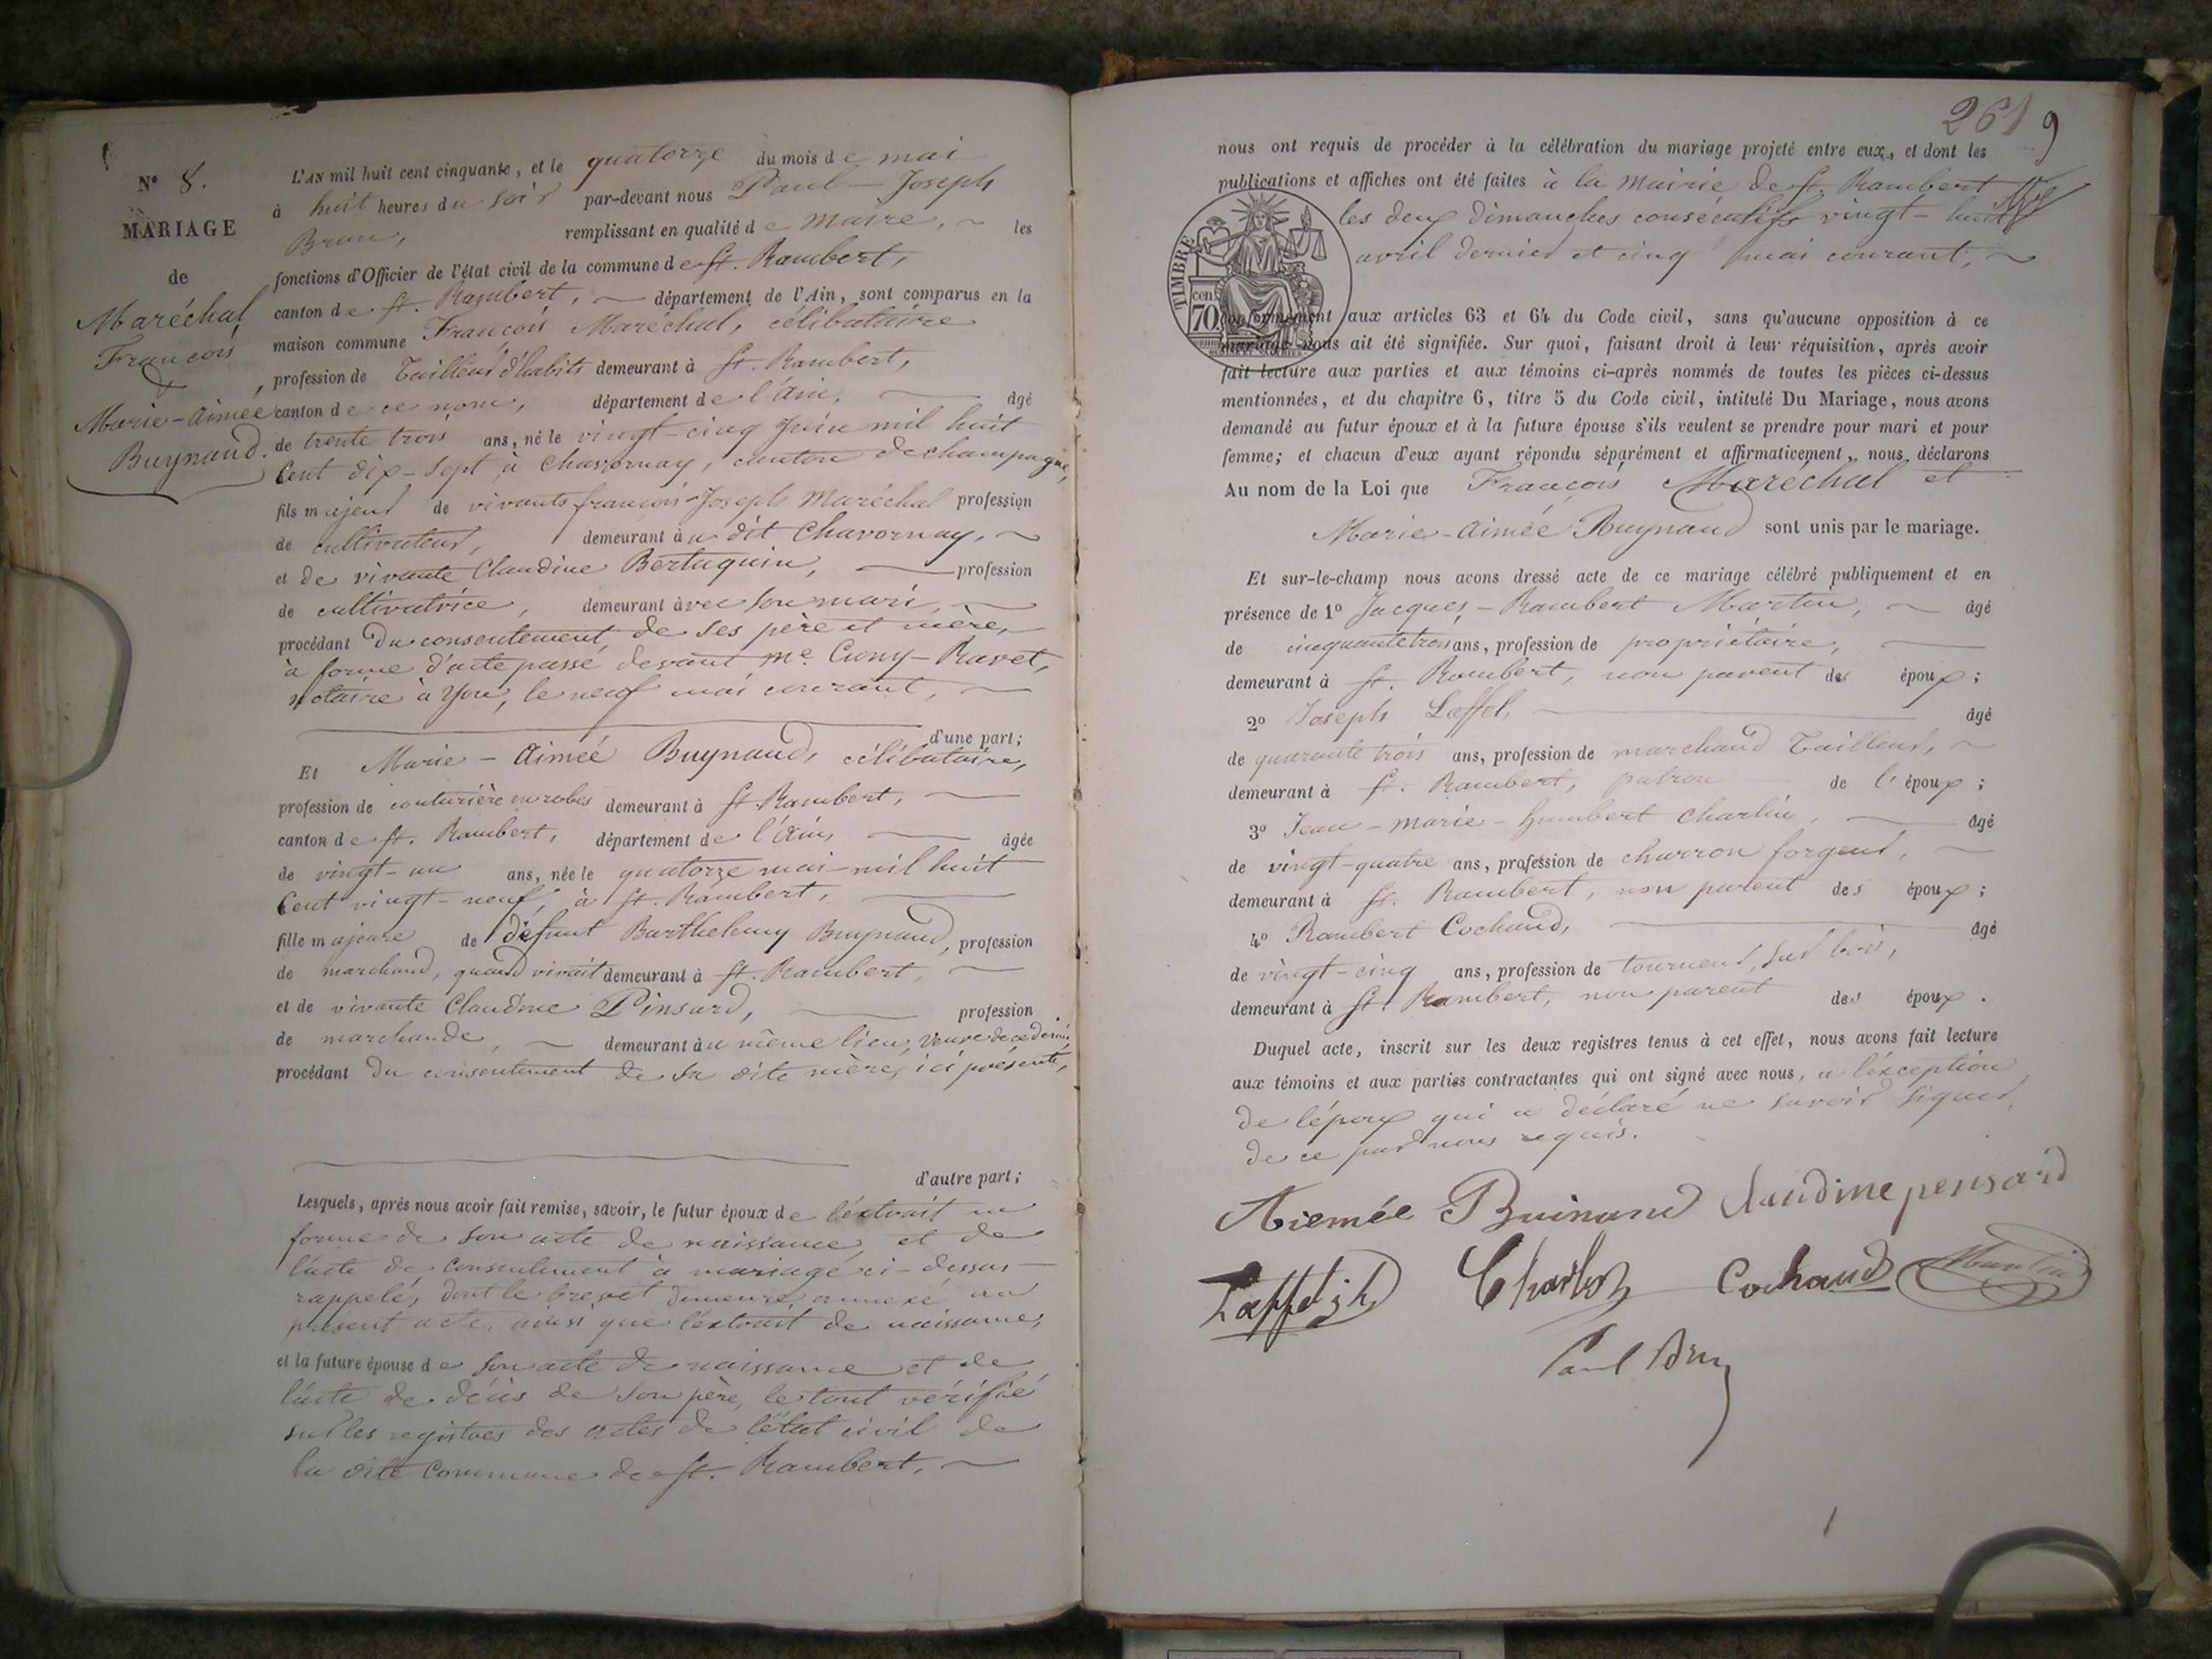 N° 8.
MARIAGE
de
Maréchal,
François
&
Marie-Aimée
Buynaud.
L'AN mil huit cent cinquante, et le quatorze du mois de mai
à huit heures du soir par-devant nous Paul-Joseph
Brun, remplissant en qualité de Maire, les
fonctions d'Officier de l'état civil de la commune de St. Rambert,
canton de St. Rambert, département de l'Ain, sont comparus en la
maison commune François Maréchal, célibataire
profession de Tailleur d'habits demeurant à St. Rambert,
canton de ce nom, département de l'Ain, âgé
de trente trois ans, né le vingt-cinq Juin mil huit
Cent dix-sept à Chavornay, canton de Champagne,
fils majeur de vivants françois-Joseph Maréchal profession
de cultivateur, demeurant au dit Chavornay,
et de vivante Claudine Bertaquin, profession
de cultivatrice, demeurant avec son mari,
procédant Du consentement de ses père et mère,
à forme d'acte passé devant Me. Cuny-Ravet,
Notaire à Yon, le neuf mai courant,
d'une part;
Et Marie-Aimée Buynaud, célibataire,
profession de couturière en robes demeurant à St. Rambert,
canton de St. Rambert, département de l'Ain, âgée
de vingt-un ans, née le quatorze mai mil huit
Cent vingt-neuf, à St. Rambert,
fille majeure de défunt Barthelemy Buynaud, profession
de marchand, quand vivait demeurant à St. Rambert,
et de vivante Claudine Pinsard, profession
de marchande, demeurant au même lieu, veuve de ce dernier,
procédant du consentement de sa dite mère, ici présente,
d'autre part;
Lesquels, après nous avoir fait remise, savoir, le futur époux de l'extrait en
forme de son acte de naissance, et de
l'acte de consentement à mariage ci-dessus
rappelé, dont le brevet demeure annexé au
présent acte, ainsi que l'extrait de naissance,
et la future épouse de son acte de naissance et de
l'acte de décès de son père, le tout vérifié
sur les registres des actes de l'état civil de
la dite Commune de St. Rambert.
261 9
nous ont requis de procéder à la célébration du mariage projeté entre eux, et dont les
publications et affiches ont été faites à la Mairie de St. Rambert
les deux dimanches consécutifs vingt-huit
avril dernier et cinq mai courant,
TIMBRE
70 cen.
conformément aux articles 63 et 64 du Code civil, sans qu'aucune opposition à ce
mariage nous ait été signifiée. Sur quoi, faisant droit à leur réquisition, après avoir
fait lecture aux parties et aux témoins ci-après nommés de toutes les pièces ci-dessus
mentionnées, et du chapitre 6, titre 5 du Code civil, intitulé Du Mariage, nous avons
demandé au futur époux et à la future épouse s'ils veulent se prendre pour mari et pour
femme; et chacun d'eux ayant répondu séparément et affirmativement, nous déclarons
Au nom de la Loi que François Maréchal et
Marie-Aimée Buynaud sont unis par le mariage.
Et sur-le-champ nous avons dressé acte de ce mariage célébré publiquement et en
présence de 1° Jacques-Rambert Martin, âgé
de cinquante trois ans, profession de propriétaire,
demeurant à St. Rambert, non parent des époux;
2° Joseph Læffel, âgé
de quarante trois ans, profession de marchand Tailleur,
demeurant à St. Rambert, patron de l'époux;
3° Jean-Marie-Humbert Charlin, âgé
de vingt-quatre ans, profession de charron forgeur,
demeurant à St. Rambert, non parent des époux;
4° Rambert Cochaud, âgé
de vingt-cinq ans, profession de tourneur sur bois,
demeurant à St. Rambert, non parent des époux.
Duquel acte, inscrit sur les deux registres tenus à cet effet, nous avons fait lecture
aux témoins et aux parties contractantes qui ont signé avec nous, a l'éxception
de l'époux qui a déclaré ne savoir signer,
de ce par nous requis.
Aiemée Buinand Claudine pensard
Læffel Cochaud Martin
Paul Brun